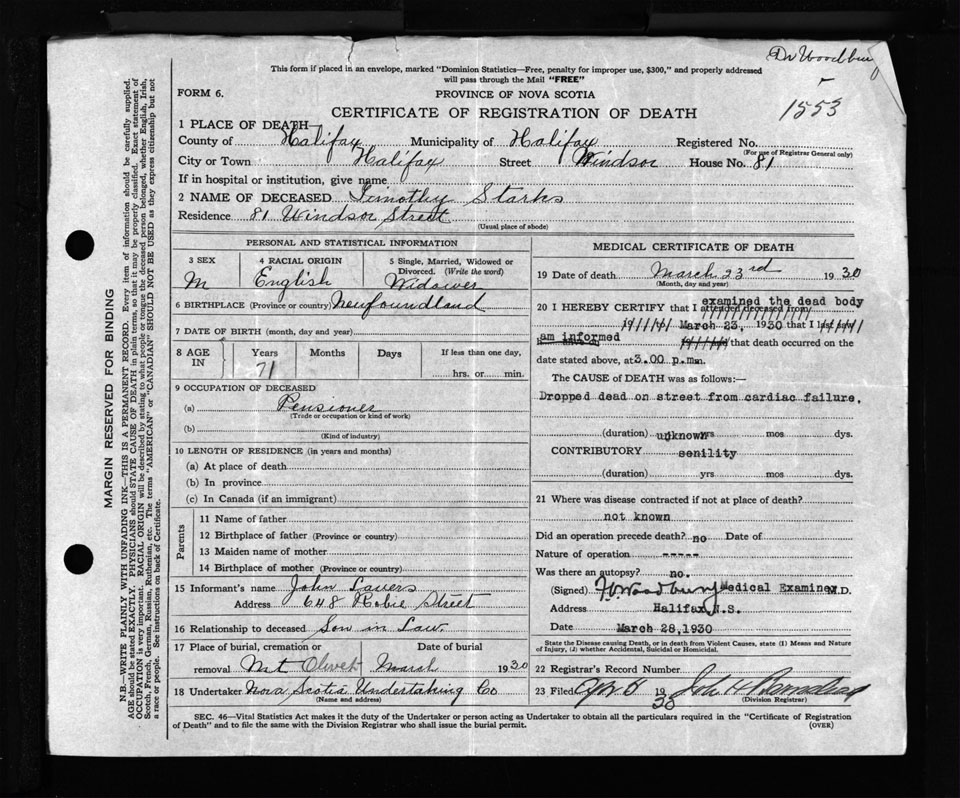 Dr Woodbury
1553
This form if placed in an envelope, marked "Dominion Statistics—Free, penalty for improper use, $300," and properly addressed
will pass through the Mail "FREE"
FORM 6.
PROVINCE OF NOVA SCOTIA
CERTIFICATE OF REGISTRATION OF DEATH
1 PLACE OF DEATH
County of Halifax Municipality of Halifax Registered No.
(For use of Registrar General only)
City or Town Halifax Street Windsor House No. 81
If in hospital or institution, give name
2 NAME OF DECEASED Timothy Starks
Residence 81 Windsor Street
(Usual place of abode)
PERSONAL AND STATISTICAL INFORMATION
3 SEX 4 RACIAL ORIGIN 5 Single, Married, Widowed or
Divorced. (Write the word)
M English Widower
6 BIRTHPLACE (Province or country) Newfoundland
7 DATE OF BIRTH (month, day and year)
8 AGE IN Years Months Days If less than one day,
71 hrs. or min.
9 OCCUPATION OF DECEASED
(a) Pensioner
(Trade or occupation or kind of work)
(b)
(Kind of industry)
10 LENGTH OF RESIDENCE (in years and months)
(a) At place of death
(b) In province
(c) In Canada (if an immigrant)
Parents
11 Name of father
12 Birthplace of father (Province or country)
13 Maiden name of mother
14 Birthplace of mother (Province or country)
15 Informant's name John Lavers
Address 648 Robie Street
16 Relationship to deceased Son in Law.
17 Place of burial, cremation or Date of burial
removal Mt Olivet March 1930
18 Undertaker Nova Scotia Undertaking Co
(Name and address)
MEDICAL CERTIFICATE OF DEATH
19 Date of death March 23rd 1930
(Month, day and year)
20 I HEREBY CERTIFY that I examined the dead body
attended deceased from
March 23, 1930 that I last saw
am informed that death occurred on the
date stated above, at 3.00 p.m.
The CAUSE of DEATH was as follows:—
Dropped dead on street from cardiac failure.
(duration) unknown yrs mos dys.
CONTRIBUTORY senility
(duration) yrs mos dys.
21 Where was disease contracted if not at place of death?
not known
Did an operation precede death? no Date of
Nature of operation -----
Was there an autopsy? no.
(Signed) Woodbury Medical Examiner M.D.
Address Halifax N.S.
Date March 28, 1930
State the Disease causing Death, or in death from Violent Causes, state (1) Means and Nature
of Injury, (2) whether Accidental, Suicidal or Homicidal.
22 Registrar's Record Number
23 Filed 1930
(Division Registrar)
SEC. 46—Vital Statistics Act makes it the duty of the Undertaker or person acting as Undertaker to obtain all the particulars required in the "Certificate of Registration
of Death" and to file the same with the Division Registrar who shall issue the burial permit.
(OVER)
MARGIN RESERVED FOR BINDING
N.B.—WRITE PLAINLY WITH UNFADING INK—THIS IS A PERMANENT RECORD. Every item of information should be carefully supplied.
AGE should be stated EXACTLY. PHYSICIANS should STATE CAUSE OF DEATH in plain terms, so that it may be properly classified. Exact statement of
OCCUPATION is very important. RACIAL ORIGIN will be described by stating to what people or tongue the deceased person belonged, whether English, Irish,
Scotch, French, German, Russian, Ruthenian, etc. The terms "AMERICAN" or "CANADIAN" SHOULD NOT BE USED as they express citizenship but not
a race or people. See instructions on back of Certificate.